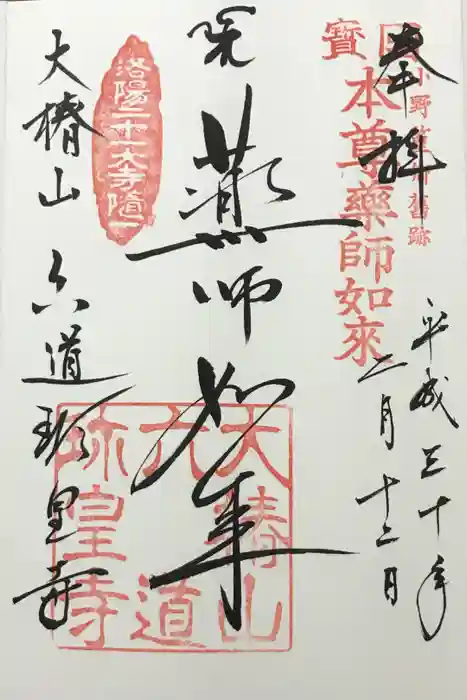 奉拝
平成三十年
二月十二日
國寶
本尊藥師如來
小野
舊跡
薬師如来
洛陽二十一大寺随一
大椿山
六道珍皇寺
大椿山
六道
珍皇寺